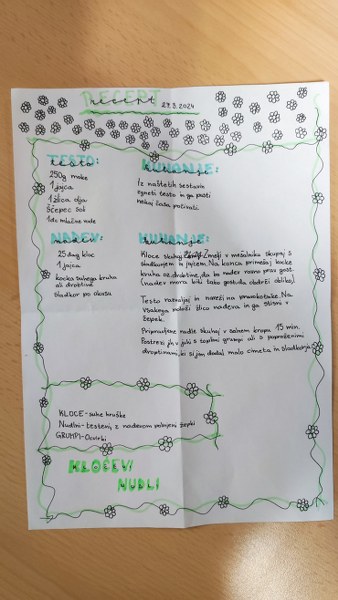 RECEPT 27.3.2024
TESTO:
250g moke
1 jajca
1 žlica olja
Ščepec soli
1 dc mlačne vode
KUHANJE:
Iz naštetih sestavin
zgneti testo in ga pusti
nekaj časa počivati.
NADEV:
25 dag kloc
1 jajca
kocka suhega kruha
ali drobtine
sladkor po okusu
KUHANJE:
Kloce skuhaj, zmelji v mešalniku skupaj s
sladkorjem in jajcem. Na koncu primešaj kocke
kruha ali drobtine, da bo nadev ravno prav gost.
(nadev mora biti tako gost, da obdrži obliko).
Testo razvaljaj in nareži na kvadratke. Na
vsakega položi žlico nadeva in ga stisni v
žepek.
Pripravljene nudle skuhaj v slanem kropu 15 min.
Postrezi jih v juhi s toplimi grumpi ali s popraženimi
drobtinami, ki si jim dodal malo cimeta in sladkorja.
KLOCE-suhe hruške
Nudlni-testeni, z nadevom polnjeni žepki
GRUMPI-Ocvirki
KLOČEVI
NUDLI